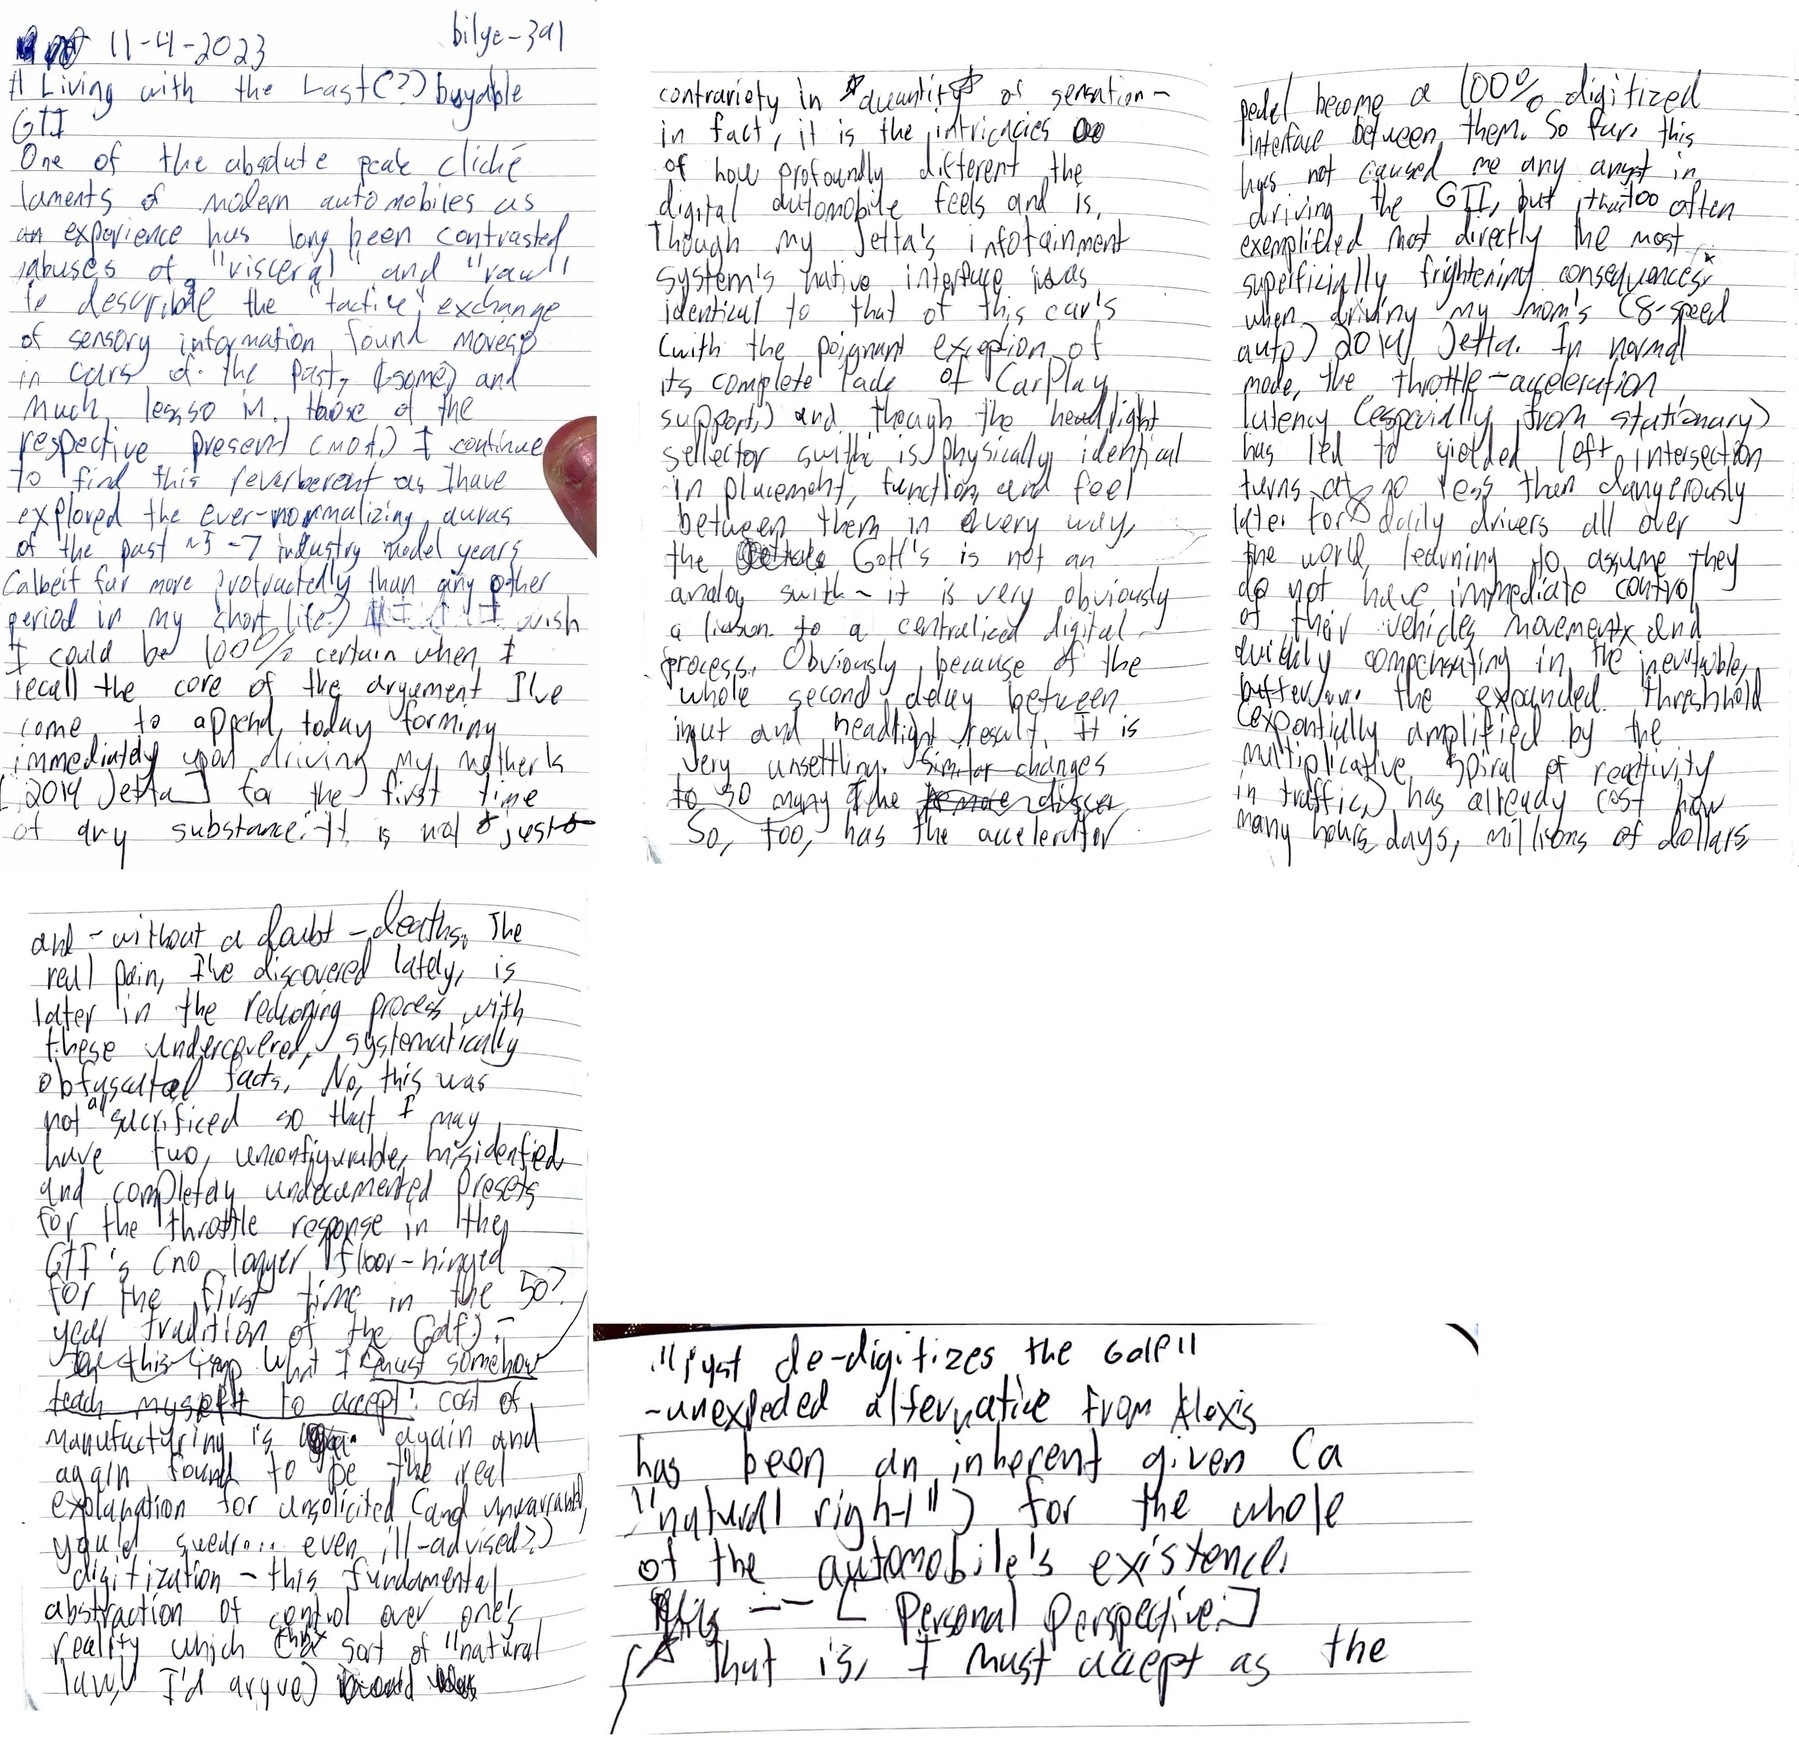 11-4-2023
bilge-391
# Living with the Last(?) buyable
GTI
One of the absolute peak cliché
laments of modern automobiles as
an experience has long been contrasted
abuses of "visceral" and "raw"
to describle the "tactile" exchange
of sensory information found
in cars of the past, (some) and
much less so in those of the
respective present (most.) I continue
to find this reverberent as I have
explored the ever-normalizing auras
of the past ~5-7 industry model years
(albeit far more protractedly than any other
period in my short life.) I wish
I could be 100% certain when I
recall the core of the argument I've
come to append today forming
immediately upon driving my mother's
[2019 Jetta] for the first time
of any substance: It is not just
contrariety in quantity of sensation -
in fact, it is the intricacies
of how profoundly different the
digital automobile feels and is.
Though my Jetta's infotainment
system's native interface was
identical to that of this car's
(with the poignant exception of
its complete lack of CarPlay
support,) and though the headlight
sellector swith is physically identical
in placement, function, and feel
between them in every way,
the Golf's is not an
analog swith - it is very obviously
a liason to a centraliced digital
process. Obviously, because of the
whole second delay between
input and headlight result. It is
very unsettling. Similar changes
to so many of the
So, too, has the accelerator
pedel become a 100% digitized
interface between them. So far, this
has not caused me any angst in
driving the GTI, but too often
exemplified most directly the most
superficially frightening consequences*
when driving my mom's (8-speed
auto) 2019 Jetta. In normal
mode, the throttle-acceleration
latency (especially from stationary)
has led to yielded left intersection
turns at no less than dangerously
late. For daily drivers all over
the world, learning to assume they
do not have immediate control
of their vehicles movements and
quickly compensating in the inevitable,
the expanded threshhold
(expontially amplified by the
multiplicative spiral of reactivity
in traffic,) has already cost how
many hours, days, millions of dollars
and - without a doubt - deaths. The
real pain, I've discovered lately, is
later in the reckoning process with
these undercovered, systematically
obfuscated facts. No, this was
not all sacrificed so that I may
have two, unconfigurable, misidentified
and completely undocumented presets
for the throttle response in the
GTI's (no longer floor-hinged
for the first time in the 50?
year tradition of the Golf) -
what I must somehow
teach myself to accept: cost of
manufacturing is again and
again found to be the real
explanation for unsolicited (and unwarranted,
you'd swear... even ill-advised?)
digitization - this fundamental
abstraction of control over one's
reality which (that sort of "natural
law," I'd argue)
"just de-digitizes the Golf"
- unexpeded alternative from Alexis
has been an inherent given (a
"natural right") for the whole
of the automobile's existence.
-- [Personal Perspective.]
That is, I must accept as the